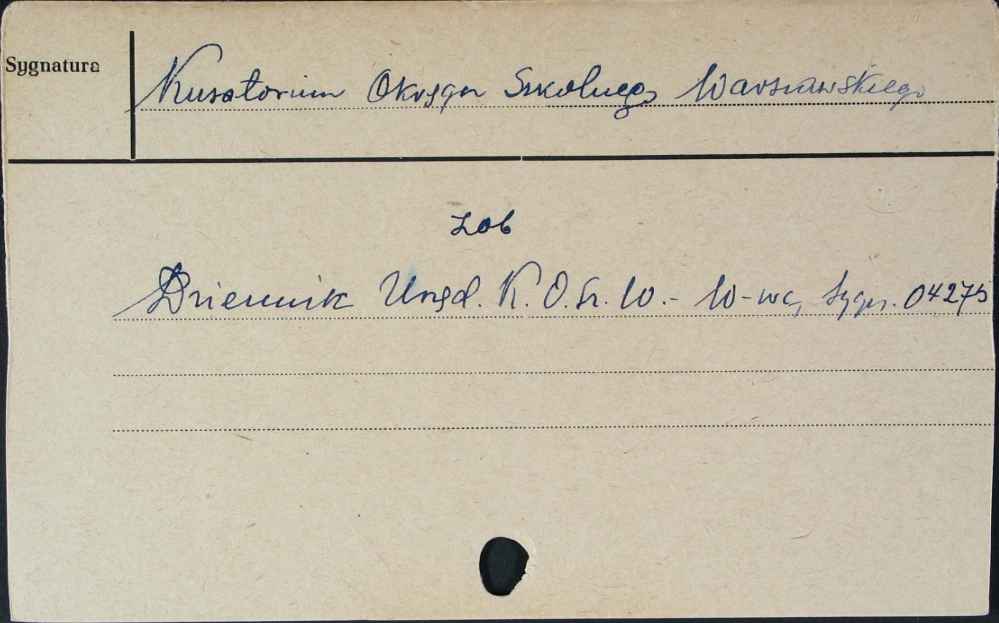 Sygnatura
Kuratorium Okręgu Szkolnego Warszawskiego
Zob
Dziennik Urzęd. K. O. Sz. W. - W-wa, Sygn. 04275